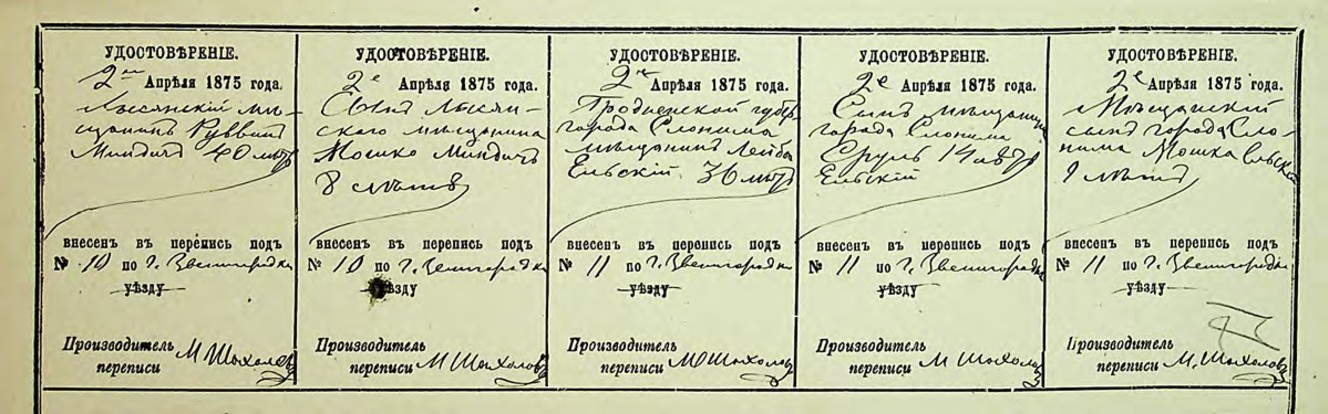 УДОСТОВѢРЕНІЕ.
2го Апрѣля 1875 года.
Лысянскій мѣ-
щанинъ Руввинъ
Миндичъ 40 лѣтъ
внесенъ въ перепись подъ
№ 10 по г. Звенигородкѣ
уѣзду
Производитель М Шохоловъ
переписи
УДОСТОВѢРЕНІЕ.
2е Апрѣля 1875 года.
Сынъ лысян-
скаго мѣщанина
Мошко Миндичъ
8 лѣтъ
внесенъ въ перепись подъ
№ 10 по г. Звенигородкѣ
уѣзду
Производитель
переписи М Шохоловъ
УДОСТОВѢРЕНІЕ.
2го Апрѣля 1875 года.
Гродненской губер.
города Слонима
мѣщанинъ Лейба
Ельскій 36 лѣтъ
внесенъ въ перепись подъ
№ 11 по г. Звенигородкѣ
уѣзду
Производитель
переписи М Шохоловъ
УДОСТОВѢРЕНІЕ.
2е Апрѣля 1875 года.
Сынъ мѣщанина
города Слонима
Сруль 14 лѣтъ
Ельскій
внесенъ въ перепись подъ
№ 11 по г. Звенигородкѣ
уѣзду
Производитель
переписи М Шохоловъ
УДОСТОВѢРЕНІЕ.
2е Апрѣля 1875 года.
Мѣщанскій
сынъ города Сло-
нима Мошка Ельскій
9 лѣтъ
внесенъ въ перепись подъ
№ 11 по г. Звенигородкѣ
уѣзду
Производитель
переписи М. Шохоловъ